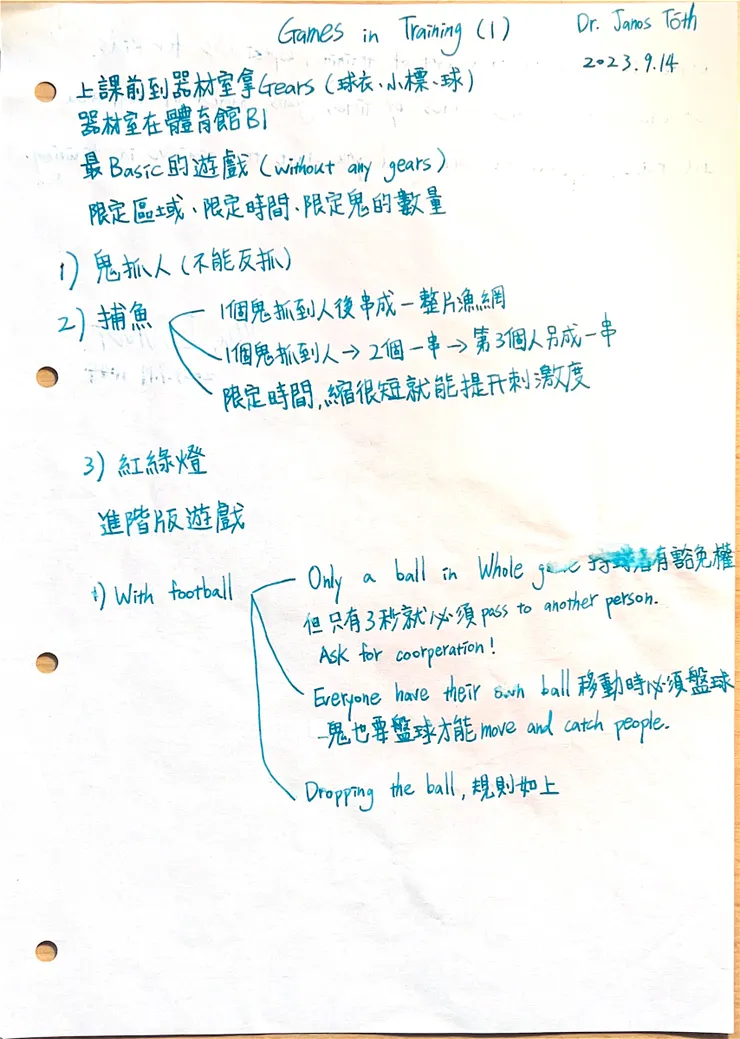 Games in Training (1)
Dr. Janos Tóth
2023.9.14
上課前到器材室拿Gears (球衣、小標、球)
器材室在體育館B1
最Basic的遊戲 (without any gears)
限定區域、限定時間、限定鬼的數量
1) 鬼抓人 (不能反抓)
2) 捕魚
1個鬼抓到人後串成一整片漁網
1個鬼抓到人→2個一串→第3個人另成一串
限定時間,縮很短就能提升刺激度
3) 紅綠燈
進階版遊戲
1) With football
Only a ball in Whole 有豁免權
但只有3秒就必須pass to another person.
Ask for coorperation!
Everyone have their own ball 移動時必須盤球
鬼也要盤球才能move and catch people.
Dropping the ball, 規則如上